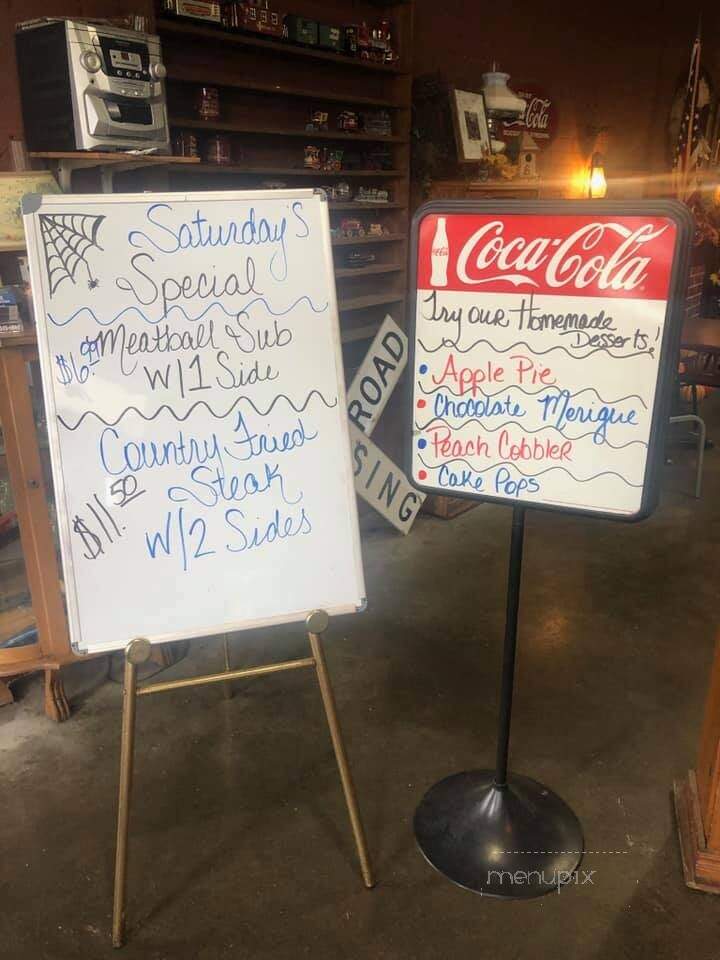 Saturday's
Special
Meatball Sub
W/1 Side
Country Fried
Steak
$11.50
W/2 Sides
Coca-Cola
Try our Homemade
Desserts!
• Apple Pie
• Chocolate Merigue
• Peach Cobbler
• Cake Pops
ROAD
SING
Cola
menupix